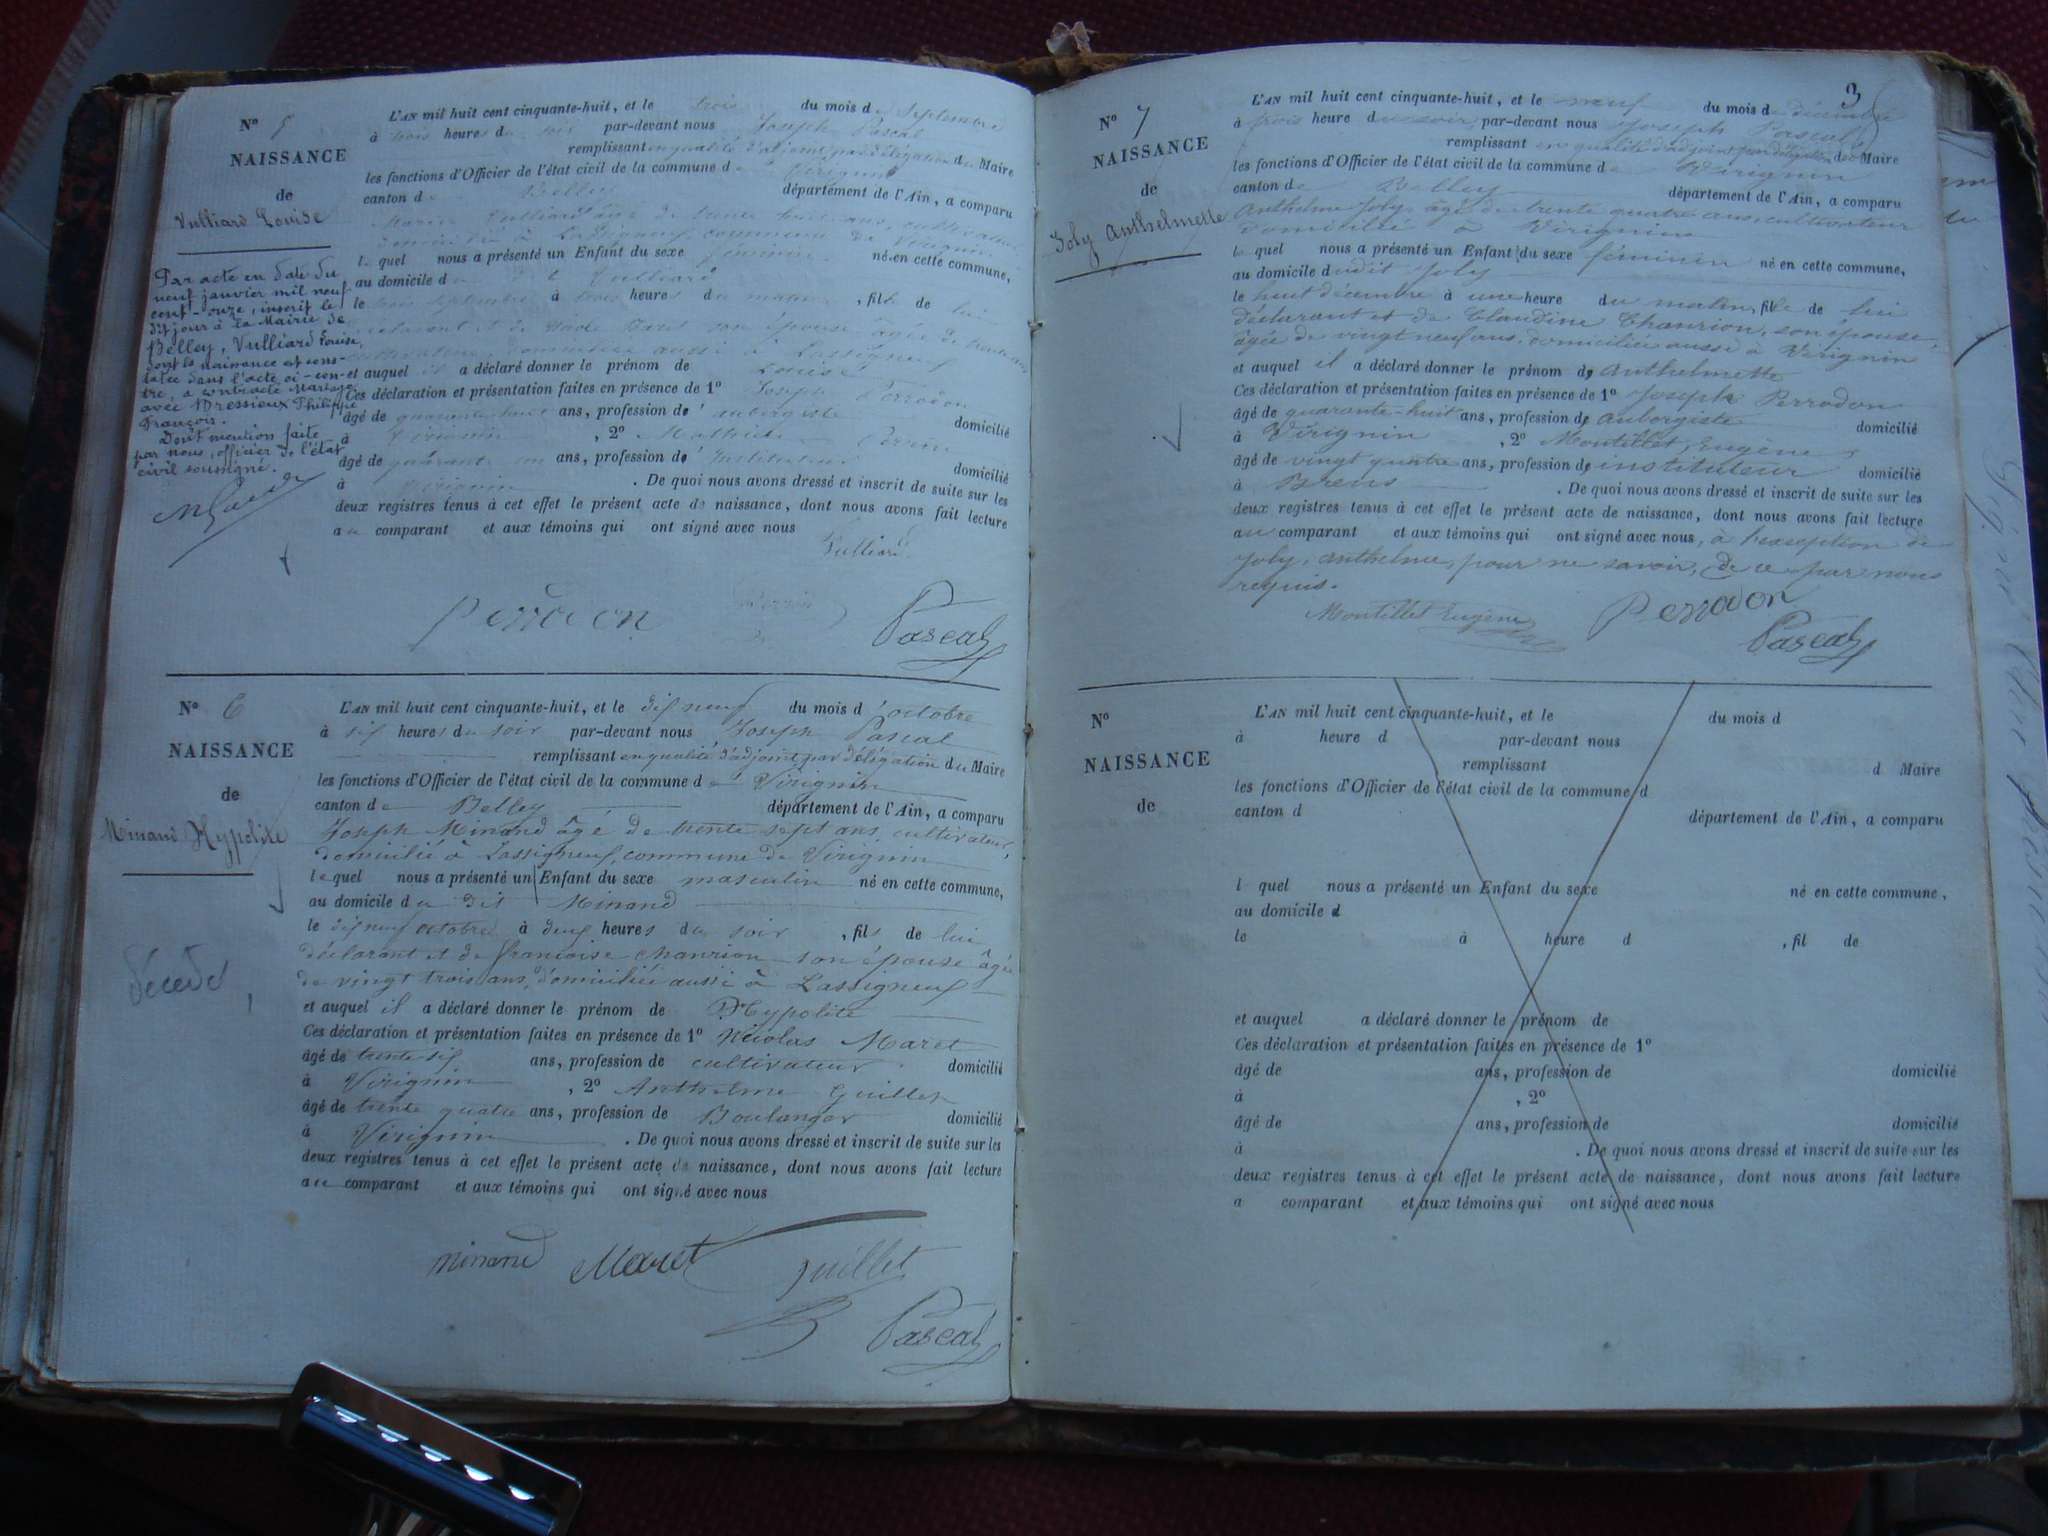 N° 5
NAISSANCE
de
Vulliard Louise
Par acte en date du
neuf janvier mil neuf
cent-onze, inscrit le
dit jour à la Mairie de
Belley, Vulliard Louise,
dont la naissance est cons-
tatée dans l'acte ci-con-
tre, a contracté mariage
avec Bressieux Philippe
François.
Dont mention faite
par nous, officier de l'état
civil soussigné.
L'AN mil huit cent cinquante-huit, et le trois du mois de Septembre
à trois heures du soir par-devant nous Joseph Pascal
remplissant en qualité d'adjoint par délégation du Maire
les fonctions d'Officier de l'état civil de la commune de Virignin
canton de Belley département de l'Ain, a comparu
Vulliard âgé de trente huit ans, cultivateur
domicilié à Lassigneux commune de Virignin
lequel nous a présenté un Enfant du sexe féminin né en cette commune,
au domicile du dit Vulliard
le trois septembre à trois heures du matin, fille de lui
déclarant et de son épouse âgée de
domiciliée aussi à Lassigneux
et auquel il a déclaré donner le prénom de Louise
Ces déclaration et présentation faites en présence de 1° Joseph Perrodon
âgé de quarante huit ans, profession d'aubergiste domicilié
à Virignin, 2° Perrin
âgé de quarante ans, profession d'Instituteur domicilié
à Virignin. De quoi nous avons dressé et inscrit de suite sur les
deux registres tenus à cet effet le présent acte de naissance, dont nous avons fait lecture
au comparant et aux témoins qui ont signé avec nous
Vulliard
Perrodon Perrin Pascal
N° 6
NAISSANCE
de
Minand Hypolite
décédé
L'AN mil huit cent cinquante-huit, et le dix neuf du mois d'octobre
à six heures du soir par-devant nous Joseph Pascal
remplissant en qualité d'adjoint par délégation du Maire
les fonctions d'Officier de l'état civil de la commune de Virignin
canton de Belley département de l'Ain, a comparu
Joseph Minand âgé de trente sept ans, cultivateur,
domicilié à Lassigneux, commune de Virignin
lequel nous a présenté un Enfant du sexe masculin né en cette commune,
au domicile du dit Minand
le dix neuf octobre à deux heures du soir, fils de lui
déclarant et de françoise Chanrion son épouse âgée
de vingt trois ans, domiciliée aussi à Lassigneux
et auquel il a déclaré donner le prénom de Hypolite
Ces déclaration et présentation faites en présence de 1° Nicolas Maret
âgé de trente six ans, profession de cultivateur domicilié
à Virignin, 2° Anthelme Guillet
âgé de trente quatre ans, profession de Boulanger domicilié
à Virignin. De quoi nous avons dressé et inscrit de suite sur les
deux registres tenus à cet effet le présent acte de naissance, dont nous avons fait lecture
au comparant et aux témoins qui ont signé avec nous
minand Maret guillet
Pascal
3
N° 7
NAISSANCE
de
Joly Anthelmette
L'AN mil huit cent cinquante-huit, et le neuf du mois de décembre
à trois heure du soir, par-devant nous Joseph Pascal
remplissant en qualité d'adjoint par délégation du Maire
les fonctions d'Officier de l'état civil de la commune de Virignin
canton de Belley département de l'Ain, a comparu
Anthelme Joly âgé de trente quatre ans, cultivateur
domicilié à Virignin
lequel nous a présenté un Enfant du sexe féminin né en cette commune,
au domicile dudit Joly
le huit décembre à une heure du matin, fille de lui
déclarant et de Claudine Chanrion, son épouse,
âgée de vingt neuf ans, domiciliée aussi à Virignin
et auquel il a déclaré donner le prénom d'Anthelmette
Ces déclaration et présentation faites en présence de 1° Joseph Perrodon
âgé de quarante-huit ans, profession d'aubergiste domicilié
à Virignin, 2° Montillet, Eugène
âgé de vingt quatre ans, profession d'instituteur domicilié
à Brens. De quoi nous avons dressé et inscrit de suite sur les
deux registres tenus à cet effet le présent acte de naissance, dont nous avons fait lecture
au comparant et aux témoins qui ont signé avec nous, à l'exception de
Joly, anthelme, pour ne savoir, de ce par nous
requis.
Montillet Eugène Perrodon
Pascal
N°
NAISSANCE
de
L'AN mil huit cent cinquante-huit, et le du mois d
à heure d par-devant nous
remplissant d Maire
les fonctions d'Officier de l'état civil de la commune d
canton d département de l'Ain, a comparu
l quel nous a présenté un Enfant du sexe né en cette commune,
au domicile d
le à heure d , fil de
et auquel a déclaré donner le prénom de
Ces déclaration et présentation faites en présence de 1°
âgé de ans, profession de domicilié
à , 2°
âgé de ans, profession de domicilié
à . De quoi nous avons dressé et inscrit de suite sur les
deux registres tenus à cet effet le présent acte de naissance, dont nous avons fait lecture
a comparant et aux témoins qui ont signé avec nous